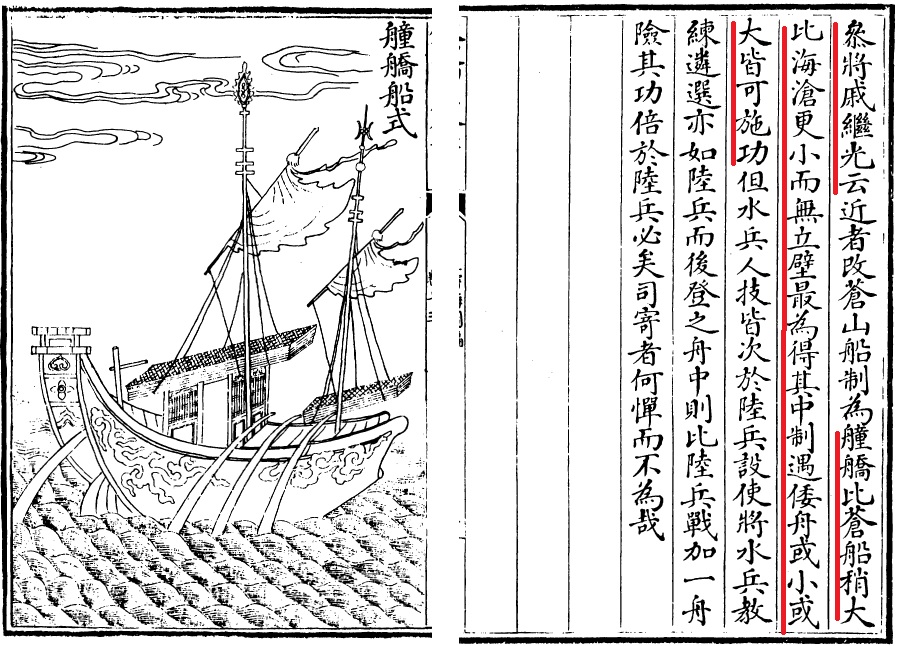 叅將戚繼光云近者改蒼山船制為艟䑼比蒼船稍大
比海滄更小而無立壁最為得其中制遇倭舟或小或
大皆可施功但水兵人技皆次於陸兵設使將水兵教
練遴選亦如陸兵而後登之舟中則比陸兵戰加一舟
險其功倍於陸兵必矣司寄者何憚而不為哉
艟䑼船式